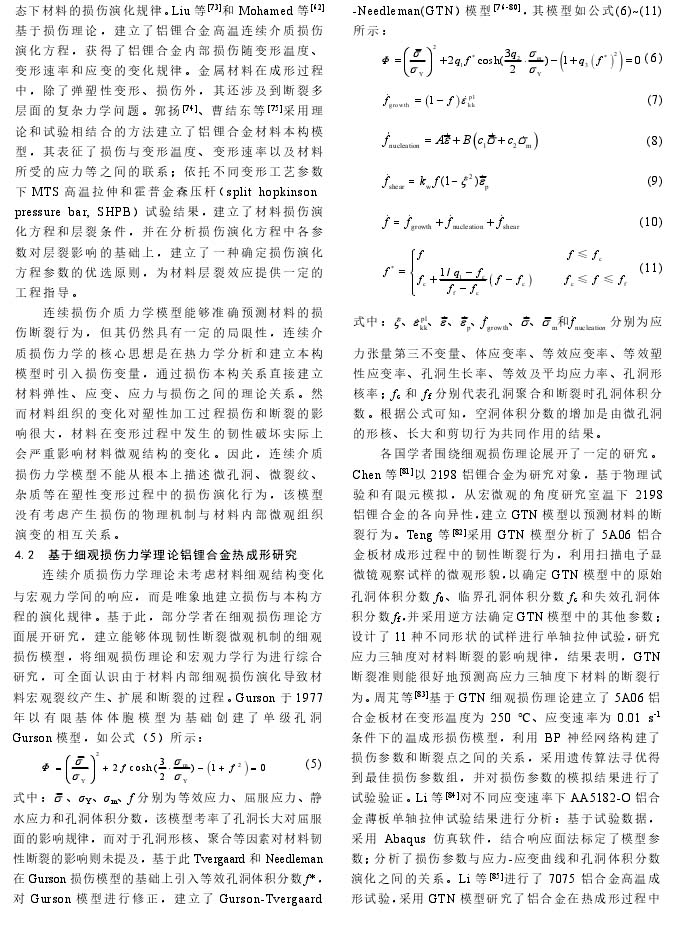 态下材料的损伤演化规律。Liu 等[73]和 Mohamed 等[62]
基于损伤理论，建立了铝锂合金高温连续介质损伤
演化方程，获得了铝锂合金内部损伤随变形温度、
变形速率和应变的变化规律。金属材料在成形过程
中，除了弹塑性变形、损伤外，其还涉及到断裂多
层面的复杂力学问题。郭扬[74]、曹结东等[75]采用理
论和试验相结合的方法建立了铝锂合金材料本构模
型，其表征了损伤与变形温度、变形速率以及材料
所受的应力等之间的联系；依托不同变形工艺参数
下 MTS 高温拉伸和霍普金森压杆(split hopkinson
pressure bar, SHPB) 试验结果，建立了材料损伤演
化方程和层裂条件，并在分析损伤演化方程中各参
数对层裂影响的基础上，建立了一种确定损伤演化
方程参数的优选原则，为材料层裂效应提供一定的
工程指导。
连续损伤介质力学模型能够准确预测材料的损
伤断裂行为，但其仍然具有一定的局限性，连续介
质损伤力学的核心思想是在热力学分析和建立本构
模型时引入损伤变量，通过损伤本构关系直接建立
材料弹性、应变、应力与损伤之间的理论关系。然
而材料组织的变化对塑性加工过程损伤和断裂的影
响很大，材料在变形过程中发生的韧性破坏实际上
会严重影响材料微观结构的变化。因此，连续介质
损伤力学模型不能从根本上描述微孔洞、微裂纹、
杂质等在塑性变形过程中的损伤演化行为，该模型
没有考虑产生损伤的物理机制与材料内部微观组织
演变的相互关系。
4. 2 基于细观损伤力学理论铝锂合金热成形研究
连续介质损伤力学理论未考虑材料细观结构变化
与宏观力学间的响应，而是唯象地建立损伤与本构方
程的演化规律。基于此，部分学者在细观损伤理论方
面展开研究，建立能够体现韧性断裂微观机制的细观
损伤模型，将细观损伤理论和宏观力学行为进行综合
研究，可全面认识由于材料内部细观损伤演化导致材
料宏观裂纹产生、扩展和断裂的过程。Gurson 于 1977
年以有限基体体胞模型为基础创建了单级孔洞
Gurson 模型，如公式（5）所示：
Φ = (σ̅/σ_Y)² + 2 f cosh(3/2 · σ_m/σ_Y) − (1 + f ²) = 0 (5)
式中：σ̅、σY、σm、f 分别为等效应力、屈服应力、静
水应力和孔洞体积分数，该模型考率了孔洞长大对屈服
面的影响规律，而对于孔洞形核、聚合等因素对材料韧
性断裂的影响则未提及，基于此 Tvergaard 和 Needleman
在 Gurson 损伤模型的基础上引入等效孔洞体积分数 f*，
对 Gurson 模型进行修正，建立了 Gurson-Tvergaard
-Needleman(GTN) 模型[76-80]，其模型如公式(6)~(11)
所示：
Φ = (σ̅/σ_Y)² + 2q₁f* cosh(3q₂/2 · σ_m/σ_Y) − (1 + q₃(f*)²) = 0 (6)
ḟ_growth = (1 − f) ε̇_kk^pl (7)
ḟ_nucleation = Aε̅̇ + B(c₁σ̅̇ + c₂σ̇_m) (8)
ḟ_shear = k_w f(1 − ξ²)ε̅̇_p (9)
ḟ = ḟ_growth + ḟ_nucleation + ḟ_shear (10)
f* = { f f ≤ f_c
f_c + (1/q₁ − f_c)/(f_f − f_c) (f − f_c) f_c ≤ f ≤ f_f (11)
式中：ξ、ε̇_kk^pl、ε̅̇、ε̅̇_p、ḟ_growth、σ̅̇、σ̅̇_m和ḟ_nucleation 分别为应
力张量第三不变量、体应变率、等效应变率、等效塑
性应变率、孔洞生长率、等效及平均应力率、孔洞形
核率；fc 和 ff 分别代表孔洞聚合和断裂时孔洞体积分
数。根据公式可知，空洞体积分数的增加是由微孔洞
的形核、长大和剪切行为共同作用的结果。
各国学者围绕细观损伤理论展开了一定的研究。
Chen 等[81]以 2198 铝锂合金为研究对象，基于物理试
验和有限元模拟，从宏微观的角度研究室温下 2198
铝锂合金的各向异性，建立 GTN 模型以预测材料的断
裂行为。Teng 等[82]采用 GTN 模型分析了 5A06 铝合
金板材成形过程中的韧性断裂行为，利用扫描电子显
微镜观察试样的微观形貌，以确定 GTN 模型中的原始
孔洞体积分数 f0、临界孔洞体积分数 fc 和失效孔洞体
积分数 ff，并采用逆方法确定 GTN 模型中的其他参数；
设计了 11 种不同形状的试样进行单轴拉伸试验，研究
应力三轴度对材料断裂的影响规律，结果表明，GTN
断裂准则能很好地预测高应力三轴度下材料的断裂行
为。周芃等[83]基于 GTN 细观损伤理论建立了 5A06 铝
合金板材在变形温度为 250 ℃、应变速率为 0.01 s-1
条件下的温成形损伤模型，利用 BP 神经网络构建了
损伤参数和断裂点之间的关系，采用遗传算法寻优得
到最佳损伤参数组，并对损伤参数的模拟结果进行了
试验验证。Li 等[84]对不同应变速率下 AA5182-O 铝合
金薄板单轴拉伸试验结果进行分析：基于试验数据，
采用 Abaqus 仿真软件，结合响应面法标定了模型参
数；分析了损伤参数与应力-应变曲线和孔洞体积分数
演化之间的关系。Li 等[85]进行了 7075 铝合金高温成
形试验，采用 GTN 模型研究了铝合金在热成形过程中